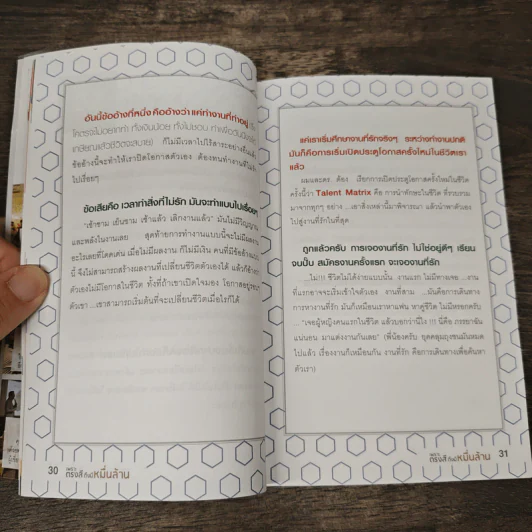 อันนี้ข้ออ้างที่หนึ่ง คืออ้างว่า แค่ทำงานที่ทำอยู่
ใครตรงไม่อยากทำ ทั้งเงินน้อย ทั้งไม่ชอบ ทำเพื่อวันนึง
เกษียณแล้วชีวิตจะสบาย) ก็ไม่มีเวลาไปไร้สาระอย่างอื่นแล้ว
ข้ออ้างนี้จะทำให้เราปิดโอกาสตัวเอง ต้องทนทำงานที่ไม่
ไปเรื่อยๆ
ข้อเสียคือ เวลาทำสิ่งที่ไม่รัก มันจะทำแบบไปเรื่อยๆ
"เช้าชาม เย็นชาม เช้าแล้ว เลิกงานแล้ว" มันไม่มีวิญญาณ
และพลังในงานเลย สุดท้ายการทำงานแบบนี้จะไม่มีผลงาน
อะไรเลยที่โดดเด่น เมื่อไม่มีผลงาน ก็ไม่มีเงิน คนที่มีข้ออ้างแบบ
นี้ จึงไม่สามารถสร้างผลงานที่เปลี่ยนชีวิตตัวเองได้ แล้วก็อ้าง
ตัวเองไม่มีโอกาสในชีวิต ทั้งที่ถ้าเขาเปิดใจมอง โอกาสอยู่รอบ
ตัวเขา ...เขาสามารถเริ่มต้นที่จะเปลี่ยนชีวิตเมื่อไรก็ได้
30
ตรงสู่ หมื่นล้าน
แค่เราเริ่มศึกษางานที่รักจริงๆ ระหว่างทำงานปกติ
มันก็คือการเริ่มเปิดประตูโอกาสครั้งใหม่ในชีวิตเรา
แล้ว
ผมและดร. ต้อง เรียกการเปิดประตูโอกาสครั้งใหม่ในชีวิต
ครั้งนี้ว่า Talent Matrix คือ การนำทักษะในชีวิต ที่รวบรวม
มาจากทุกๆ อย่าง ...เอาสิ่งเหล่านี้มาพิจารณา แล้วนำพาตัวเอง
ไปสู่งานที่รักในที่สุด
ถูกแล้วครับ การเจองานที่รัก ไม่ใช่อยู่ดีๆ เรียน
จบปั๊บ สมัครงานครั้งแรก จะเจองานที่รัก
...ไม่!!! ชีวิตไม่ได้ง่ายแบบนั้น งานแรก ไม่มีทางเจอ ...งาน
ที่แรกอาจจะเริ่มเข้าใจตัวเอง งานที่สาม ...มันคือการเดินทาง
การหางานที่รัก มันก็เหมือนเราหาแฟน หาคู่ชีวิต ไม่มีหรอกครับ
... "เจอผู้หญิงคนแรกในชีวิต แล้วบอกว่านี่ไง !!! นี่คือ ภรรยาฉัน
แน่นอน มาแต่งงานกันเลย" (พี่น้องครับ ยุคคลุมถุงชนมันหมด
ไปแล้ว เรื่องงานก็เหมือนกัน งานที่รัก คือการเดินทางเพื่อค้นหา
ตัวเรา)
ตรงสู่ หมื่นล้าน
31